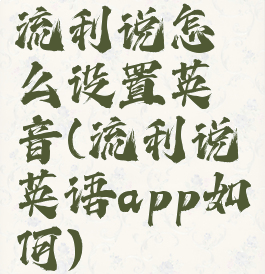 流利说怎
么设置英
音(流利说
英语app如
何)